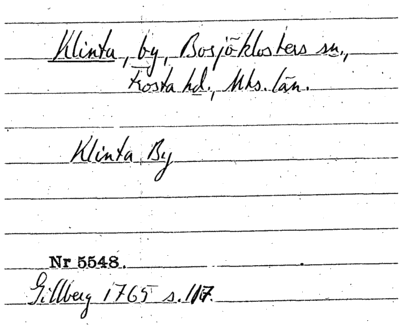 Klinta, by, Bosjöklosters sn.,
Frosta hd., Mhs. län.
Klinta By
Nr 5548.
Gillberg 1765 s. 117.